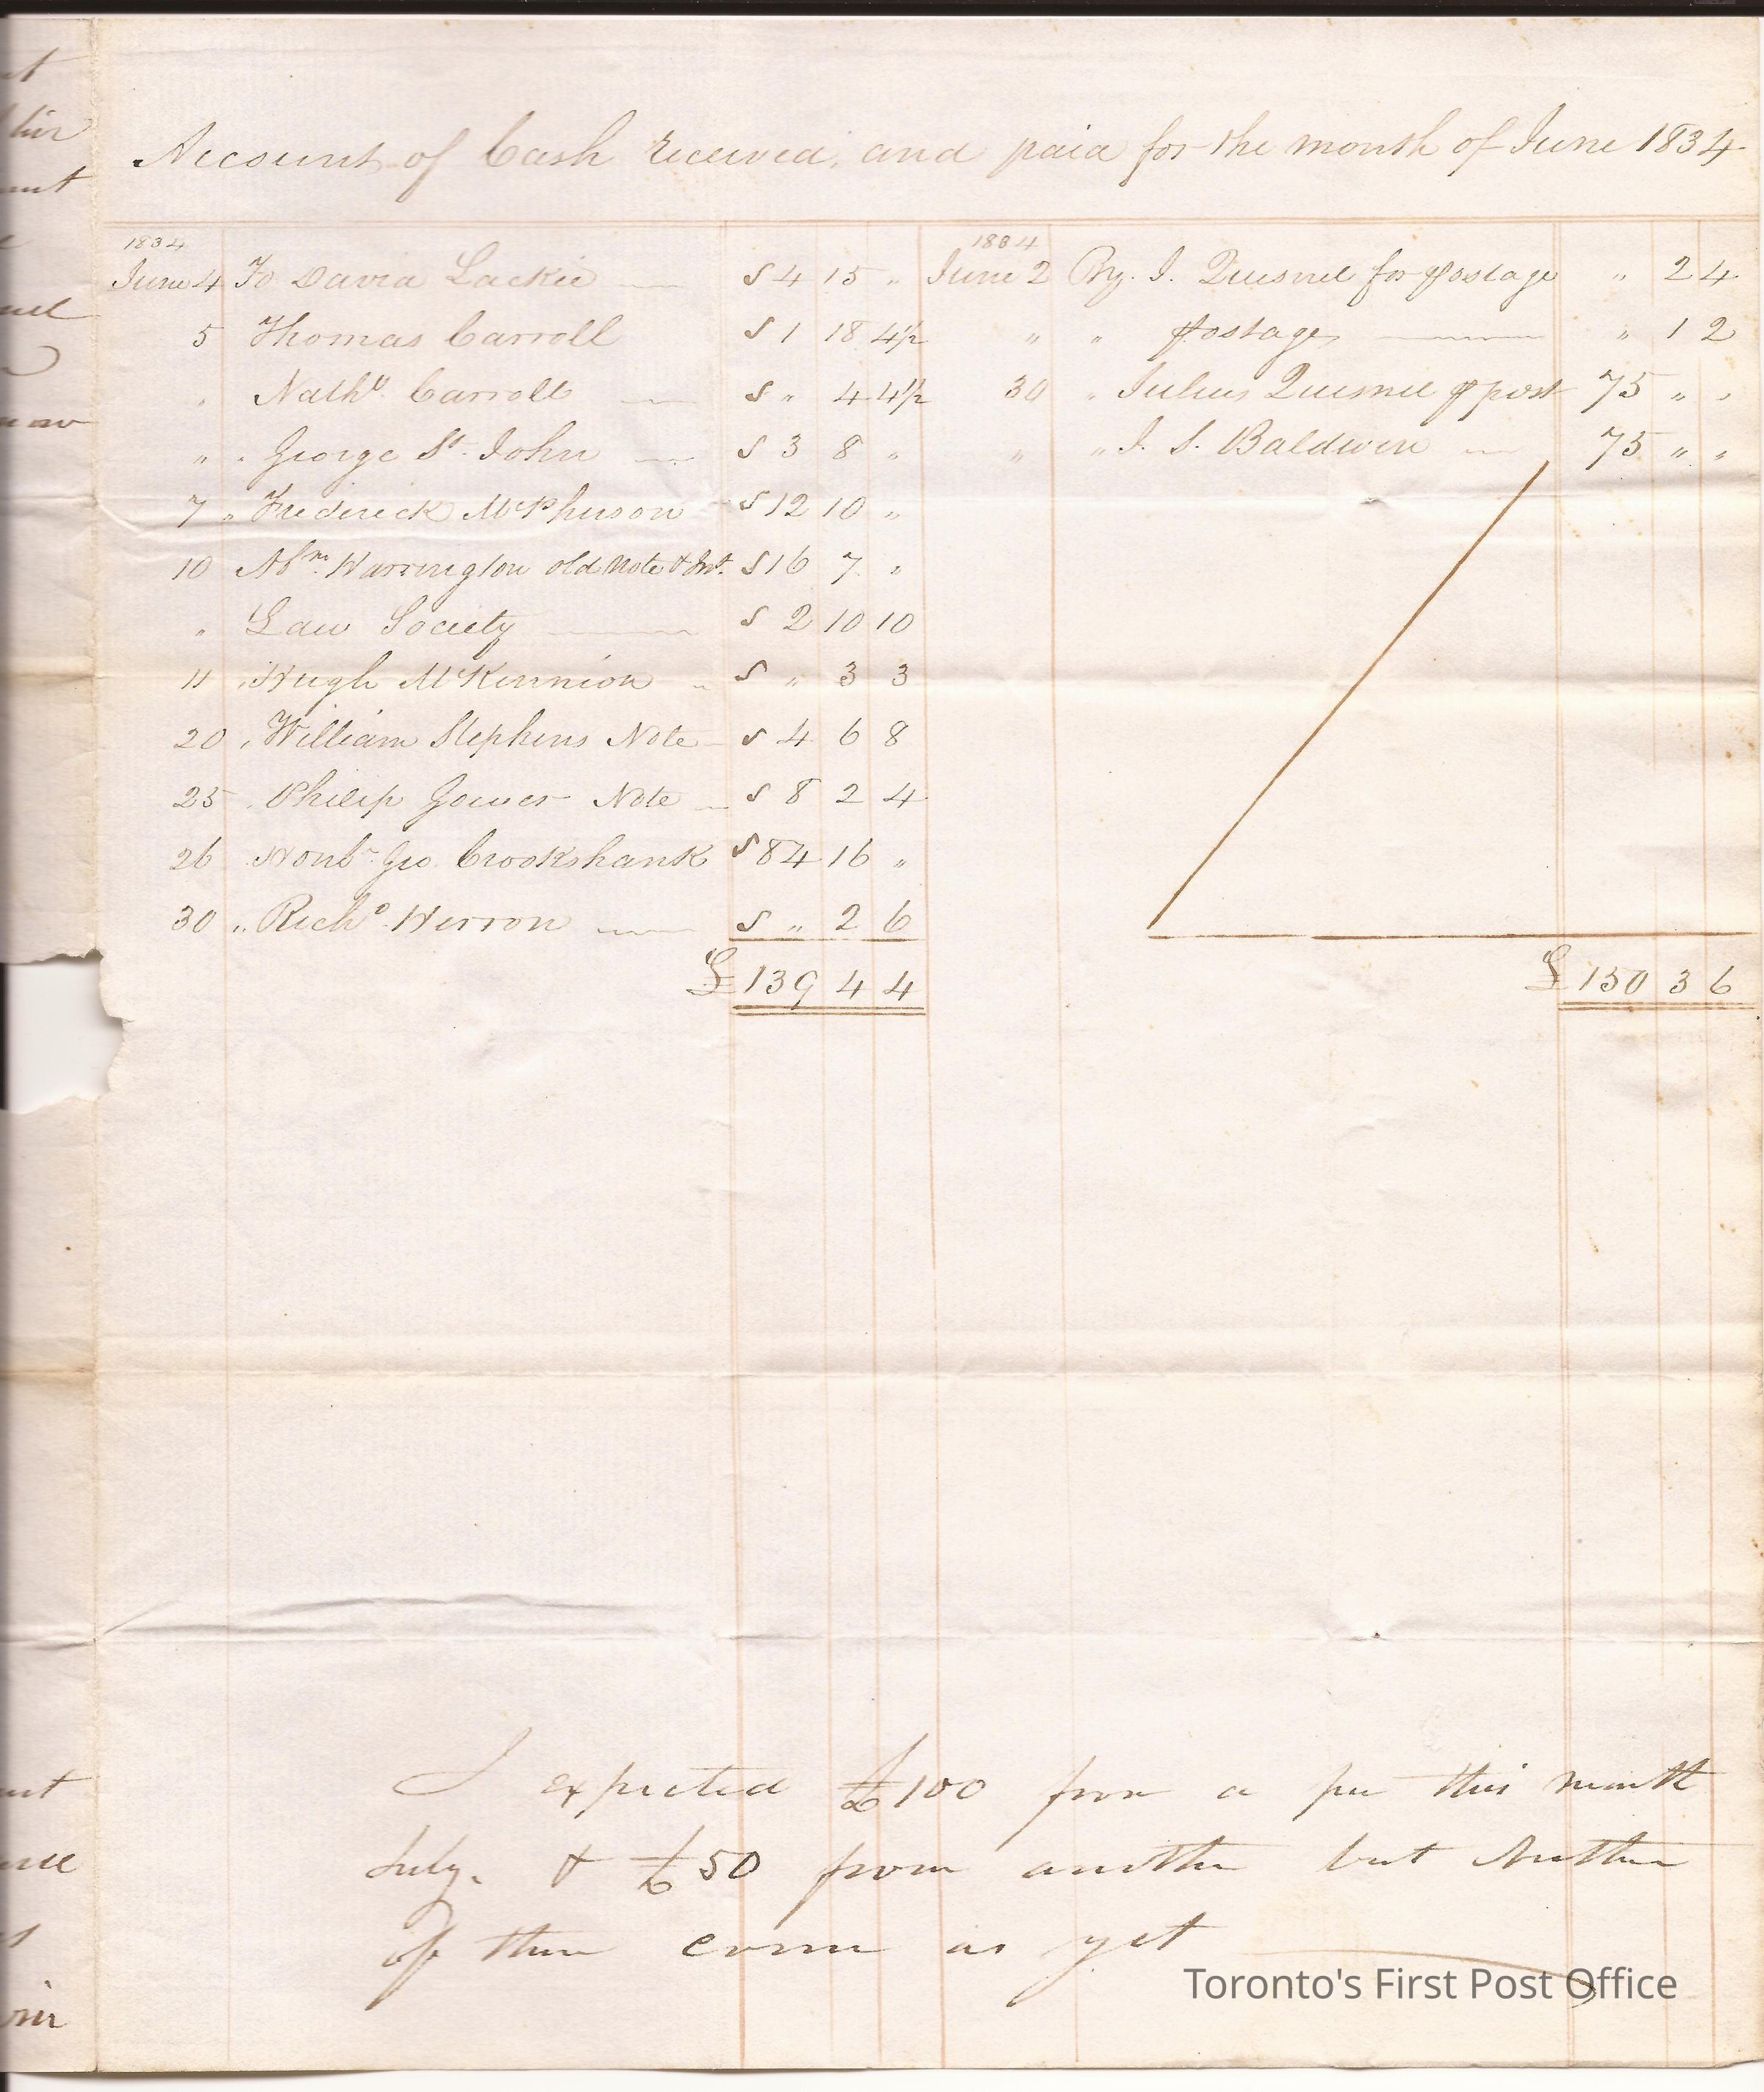 Account of Cash received, and paid for the month of June 1834
1834
June 4 To David Lackie S 4 15 "
5 Thomas Carroll S 1 18 4½
" Nathl. Carroll S " 4 4½
" " George St. John S 3 8 "
7 " Frederick McPherson S 12 10 "
10 Abm. Warrington old Note & Int. S 16 7 "
" Law Society S 2 10 10
11 " Hugh McKinnion S " 3 3
20 " William Stephens Note S 4 6 8
25 " Philip Note S 8 2 4
26 Honble Geo Crookshank S 84 16 "
30 " Richd. Herron S " 2 6
£ 139 4 4
1834
June 2 By. J. Quesnel for postage " 2 4
" " postage " 1 2
30 " Julius Quesnel post 75 " "
" " J. S. Baldwin 75 " "
£ 150 3 6
I expected £100 from a per this month
July. & £50 from another but Neither
of them come as yet
Toronto's First Post Office